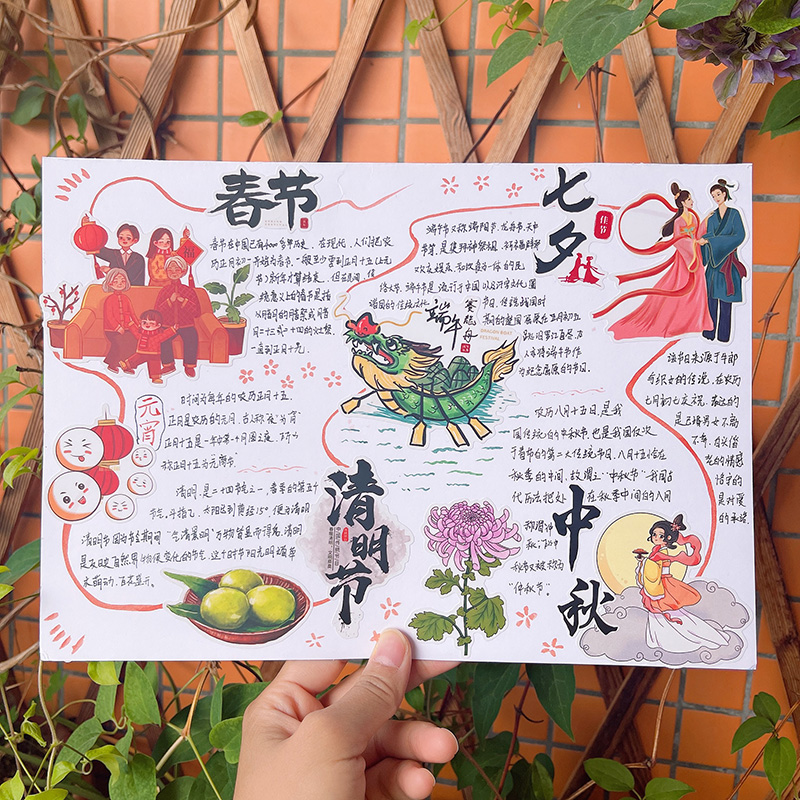 春节
春节在中国已有4000多年历史，在现代，人们把农
历正月初一开始为春节。一般至少要到正月十五(上元
节)新年才算结束，但在民间，传
统意义上的春节是指
从腊月的腊祭或腊月
二十三或二十四的祭灶，
一直到正月十九。
元宵
时间为每年的农历正月十五，
正月是农历的元月，古人称"夜"为"宵"
正月十五是一年中第一个月圆之夜，所以
称正月十五为元宵节
清明，是二十四节气之一，春季的第五个
节气，斗指乙，太阳达到黄经15°，便为清明
清明节因为节令期间"气清景明"万物皆显而得名，清明
是反映自然界物候变化的节气，这个时节阳光明媚草
木萌动，百花盛开。
清明节
端午
赛龙舟
DRAGON BOAT
FESTIVAL
端午节又称端阳节，龙舟节，天中
节等，是集拜神祭祖，祈福辟邪
欢庆娱乐和饮食为一体的民
俗大节，端午节是流行于中国以及汉字文化圈
诸国的传统文化
节日，传说战国时
期的楚国
七夕
佳节
该节日来源于牛郎
与织女的传说，在农历
七月初七庆祝，表达的
是已婚男女不离
不弃，
的情感
是对爱
的承诺
农历八月十五日，是我
国传统的中秋节，也是我国仅次
于春节的第二大传统节日，八月十五恰在
秋季的中间，故谓之"中秋节"我国古
代历法把处
在秋季中间的八月
称谓"仲
秋"，所以中
秋节又被称为
"仲秋节"。
中秋
福